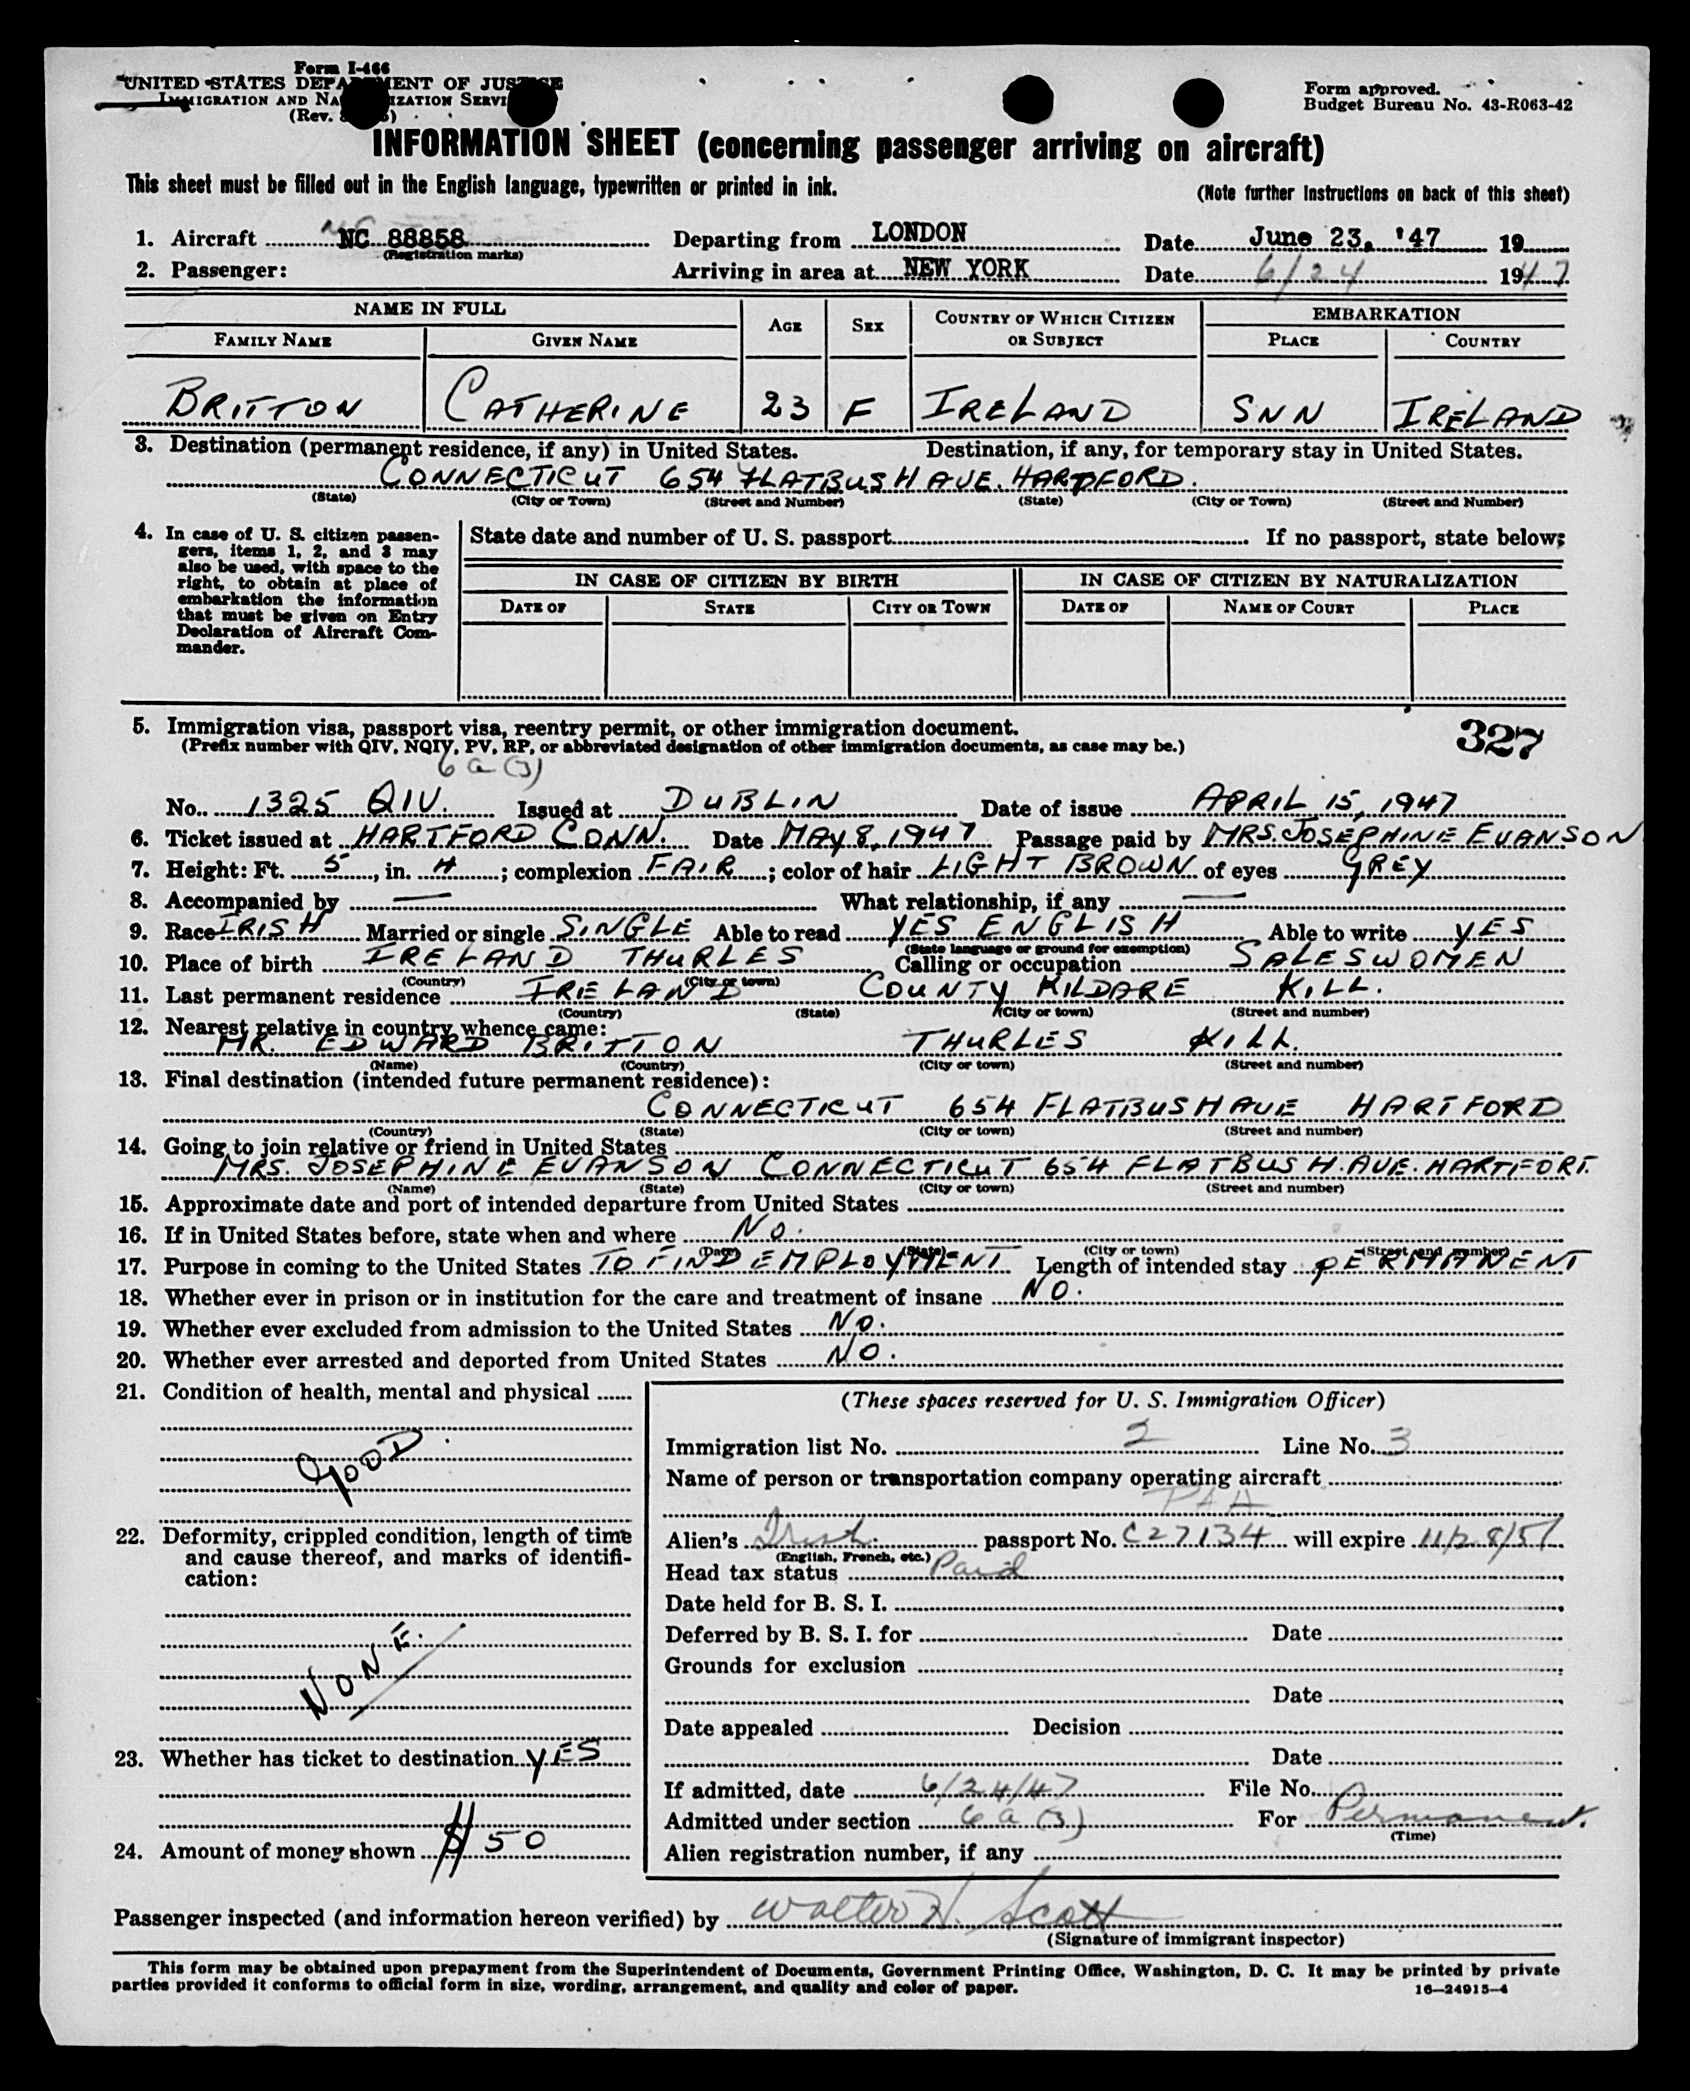 Form I-466
UNITED STATES DEPARTMENT OF JUSTICE
IMMIGRATION AND NATURALIZATION SERVICE
(Rev.
Form approved.
Budget Bureau No. 43-R063-42
INFORMATION SHEET (concerning passenger arriving on aircraft)
This sheet must be filled out in the English language, typewritten or printed in ink.
(Note further instructions on back of this sheet)
1. Aircraft NC 88858 Departing from LONDON Date June 23, '47 19
(Registration marks)
2. Passenger: Arriving in area at NEW YORK Date 6/24 1947
NAME IN FULL AGE SEX COUNTRY OF WHICH CITIZEN OR SUBJECT EMBARKATION
FAMILY NAME GIVEN NAME PLACE COUNTRY
BRITTON CATHERINE 23 F IRELAND SNN IRELAND
3. Destination (permanent residence, if any) in United States. Destination, if any, for temporary stay in United States.
CONNECTICUT 654 FLATBUSH AVE. HARTFORD.
(State) (City or Town) (Street and Number) (State) (City or Town) (Street and Number)
4. In case of U. S. citizen passengers, items 1, 2, and 3 may also be used, with space to the right, to obtain at place of embarkation the information that must be given on Entry Declaration of Aircraft Commander.
State date and number of U. S. passport If no passport, state below;
IN CASE OF CITIZEN BY BIRTH IN CASE OF CITIZEN BY NATURALIZATION
DATE OF STATE CITY OR TOWN DATE OF NAME OF COURT PLACE
5. Immigration visa, passport visa, reentry permit, or other immigration document.
(Prefix number with QIV, NQIV, PV, RP, or abbreviated designation of other immigration documents, as case may be.)
327
6a(3)
No. 1325 QIV. Issued at DUBLIN Date of issue APRIL 15, 1947
6. Ticket issued at HARTFORD CONN. Date MAY 8, 1947 Passage paid by MRS. JOSEPHINE EVANSON
7. Height: Ft. 5, in. 4; complexion FAIR; color of hair LIGHT BROWN of eyes GREY
8. Accompanied by — What relationship, if any —
9. Race IRISH Married or single SINGLE Able to read YES ENGLISH Able to write YES
(State language or ground for exemption)
10. Place of birth IRELAND THURLES Calling or occupation SALESWOMEN
(Country) (City or town)
11. Last permanent residence IRELAND COUNTY KILDARE KILL.
(Country) (State) (City or town) (Street and number)
12. Nearest relative in country whence came:
MR. EDWARD BRITTON THURLES KILL.
(Name) (Country) (City or town) (Street and number)
13. Final destination (intended future permanent residence):
CONNECTICUT 654 FLATBUSH AVE HARTFORD
(Country) (State) (City or town) (Street and number)
14. Going to join relative or friend in United States
MRS. JOSEPHINE EVANSON CONNECTICUT 654 FLATBUSH. AVE. HARTFORT.
(Name) (State) (City or town) (Street and number)
15. Approximate date and port of intended departure from United States
16. If in United States before, state when and where NO.
(Date) (State) (City or town) (Street and number)
17. Purpose in coming to the United States TO FIND EMPLOYMENT Length of intended stay PERMANENT
18. Whether ever in prison or in institution for the care and treatment of insane NO.
19. Whether ever excluded from admission to the United States NO.
20. Whether ever arrested and deported from United States NO.
21. Condition of health, mental and physical
GOOD.
22. Deformity, crippled condition, length of time and cause thereof, and marks of identification:
NONE.
23. Whether has ticket to destination YES
24. Amount of money shown $ 50
(These spaces reserved for U. S. Immigration Officer)
Immigration list No. 2 Line No. 3
Name of person or transportation company operating aircraft
PAA
Alien's Irish passport No. C27134 will expire 11/28/51
(English, French, etc.)
Head tax status Paid
Date held for B. S. I.
Deferred by B. S. I. for Date
Grounds for exclusion
Date
Date appealed Decision
Date
If admitted, date 6/24/47 File No.
Admitted under section 6a(3) For Permanent.
(Time)
Alien registration number, if any
Passenger inspected (and information hereon verified) by Walter H. Scott
(Signature of immigrant inspector)
This form may be obtained upon prepayment from the Superintendent of Documents, Government Printing Office, Washington, D. C. It may be printed by private
parties provided it conforms to official form in size, wording, arrangement, and quality and color of paper.
16—24915-4